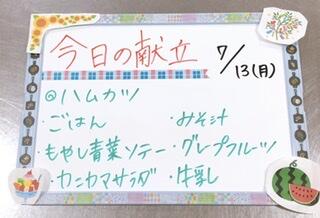 今日の献立 7/13(月)
◎ハムカツ
・ごはん ・みそ汁
・もやし青菜ソテー ・グレープフルーツ
・カニカマサラダ ・牛乳